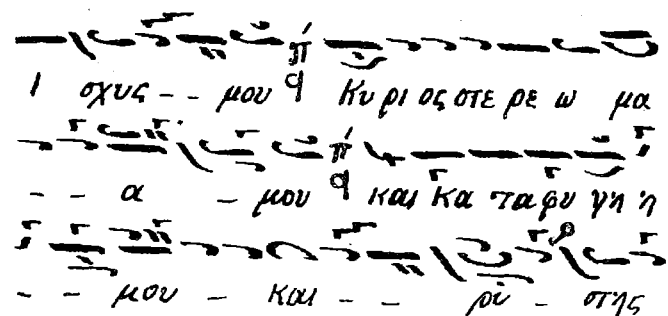 Ι σχυς - - μου π̇ q Κυ ρι ος στε ρε ω μα
- - α - μου π̇ q και Κα τα φυ γη ή
- - μου - και - - ρύ - στης